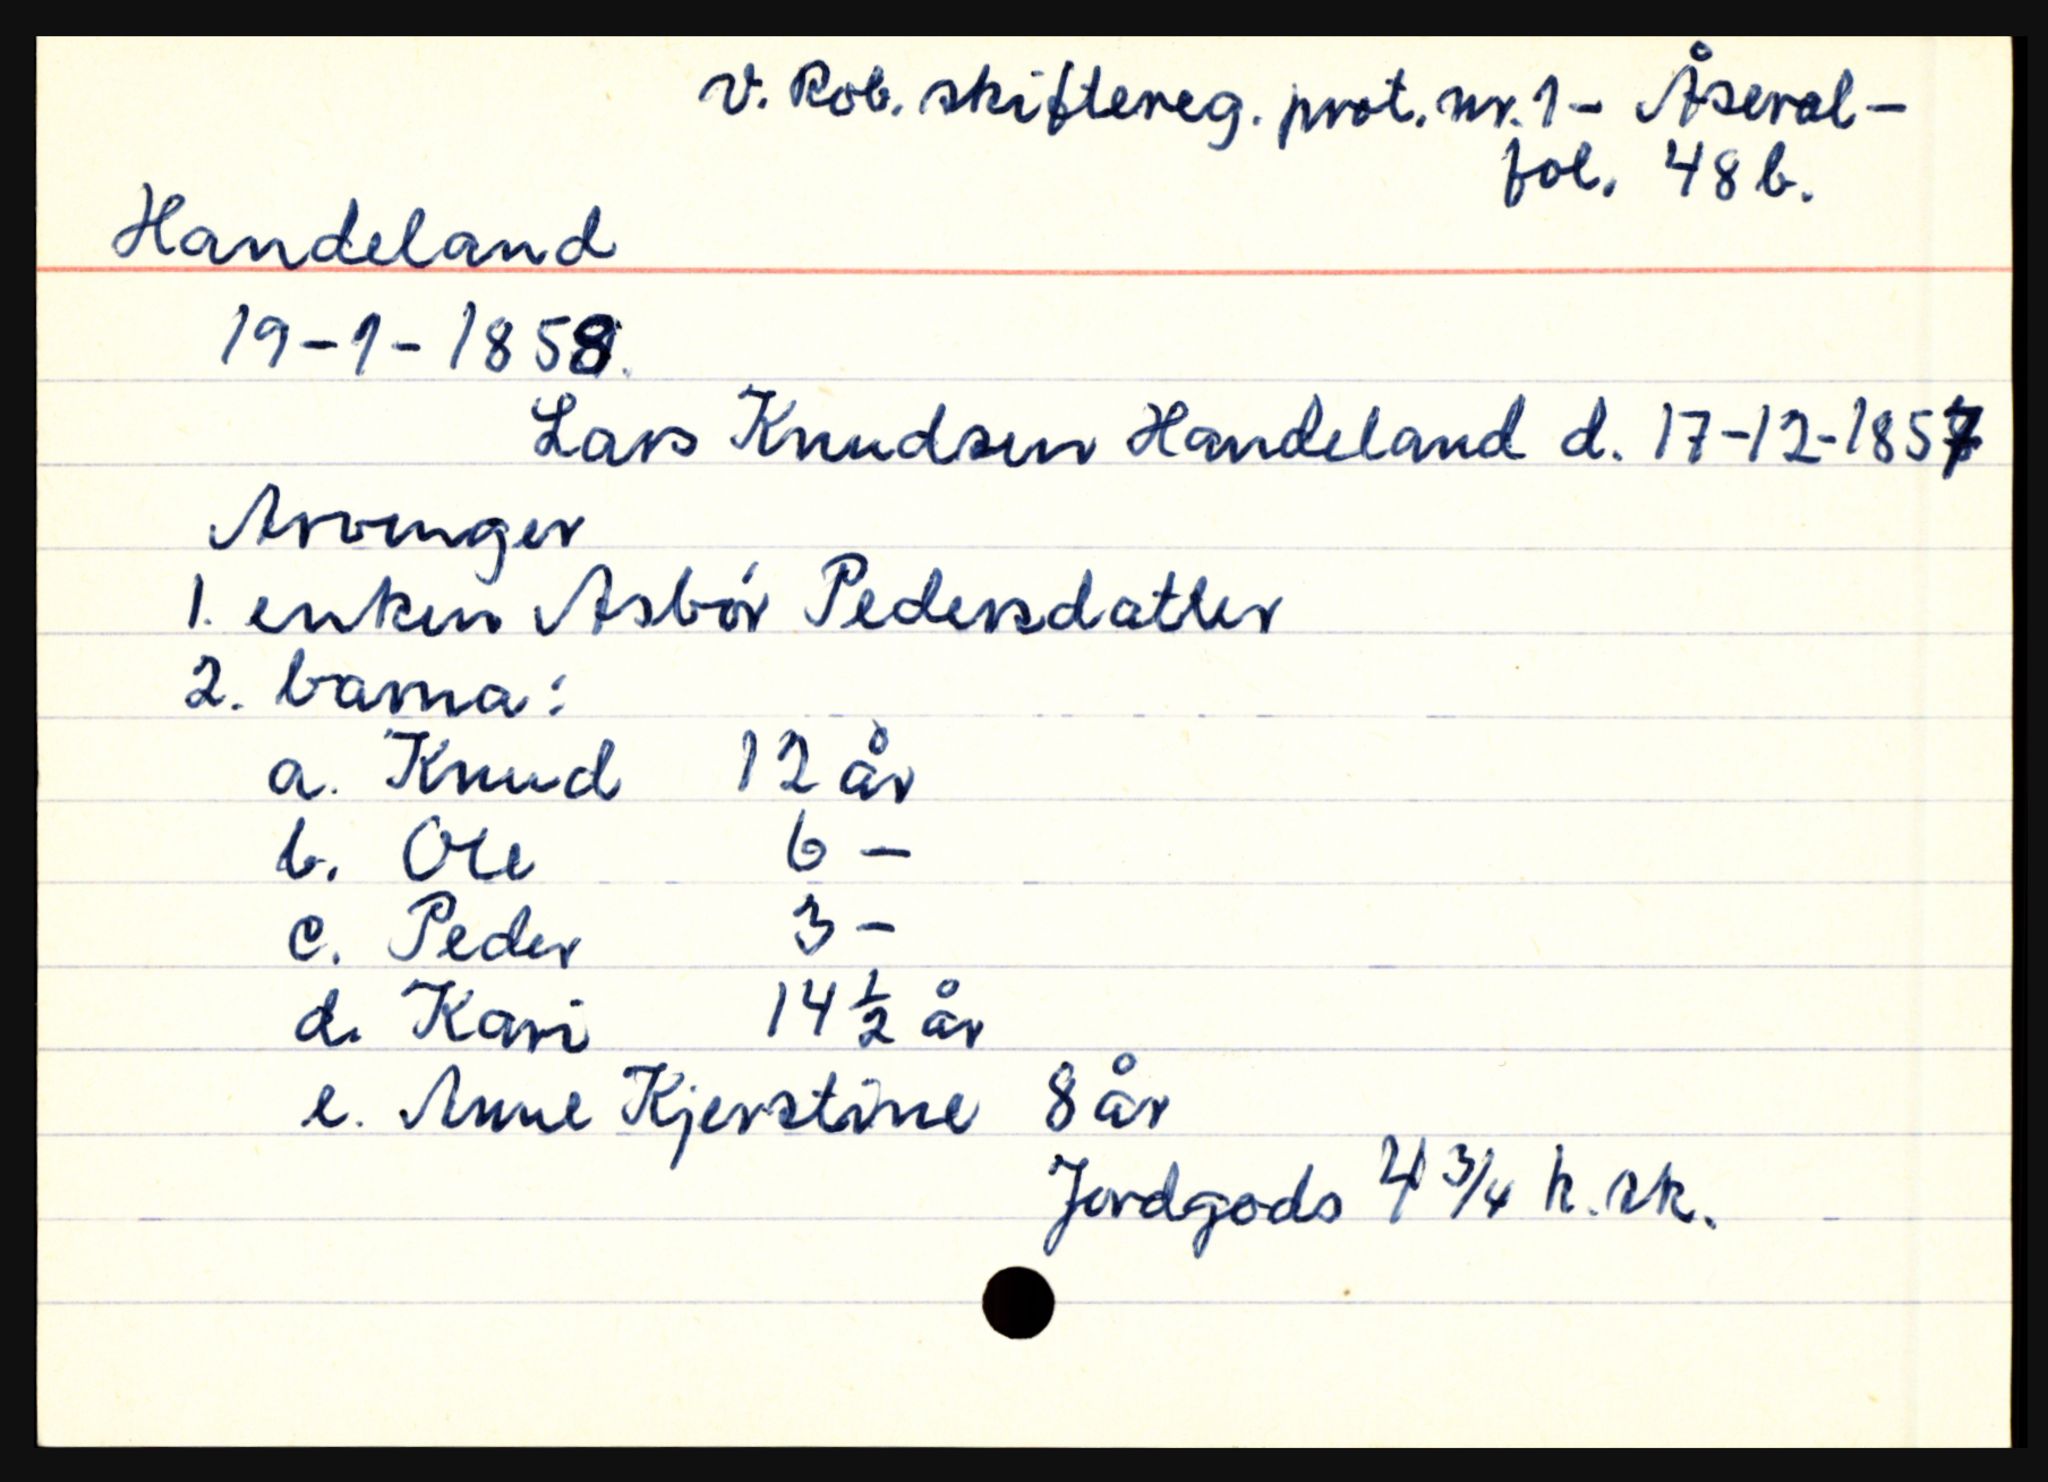 V. Rob. skiftereg. prot. nr. 1 - Åseral -
fol. 48 b.
Handeland
19-1-1858.
Lars Knudsen Handeland d. 17-12-1857
Arvinger
1. enken Asbór Pedersdatter
2. barna:
a. Knud 12 år
b. Ole 6 -
c. Peder 3 -
d. Kari 14 1/2 år
e. Anne Kjerstine 8 år
Jordgods 4 3/4 k. sk.